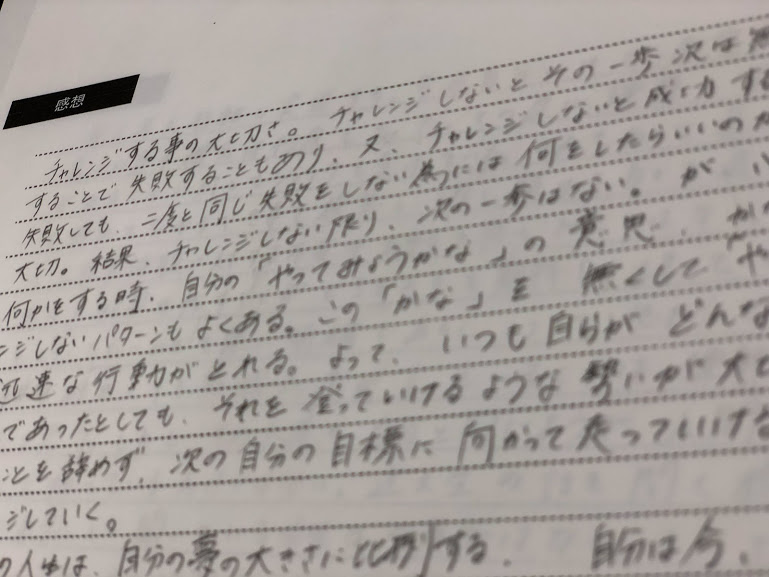 感想
チャレンジする事の大切さ。チャレンジしないとその一歩次は無
することで失敗することもあり、又、チャレンジしないと成功する
失敗しても、二度と同じ失敗をしない為には何をしたらいいのか
大切。結果、チャレンジしない限り、次の一歩はない。が
何かをする時、自分の「やってみようかな」の意思、か
ンジしないパターンもよくある。この「かな」を無くして「や
迅速な行動がとれる。よって、いつも自らがどんな
であったとしても、それを登っていけるような勢いが大切
ことを辞めず、次の自分の目標に向かって走っていける
ジしていく。
の人生は、自分の夢の大きさに比例する。自分は今、